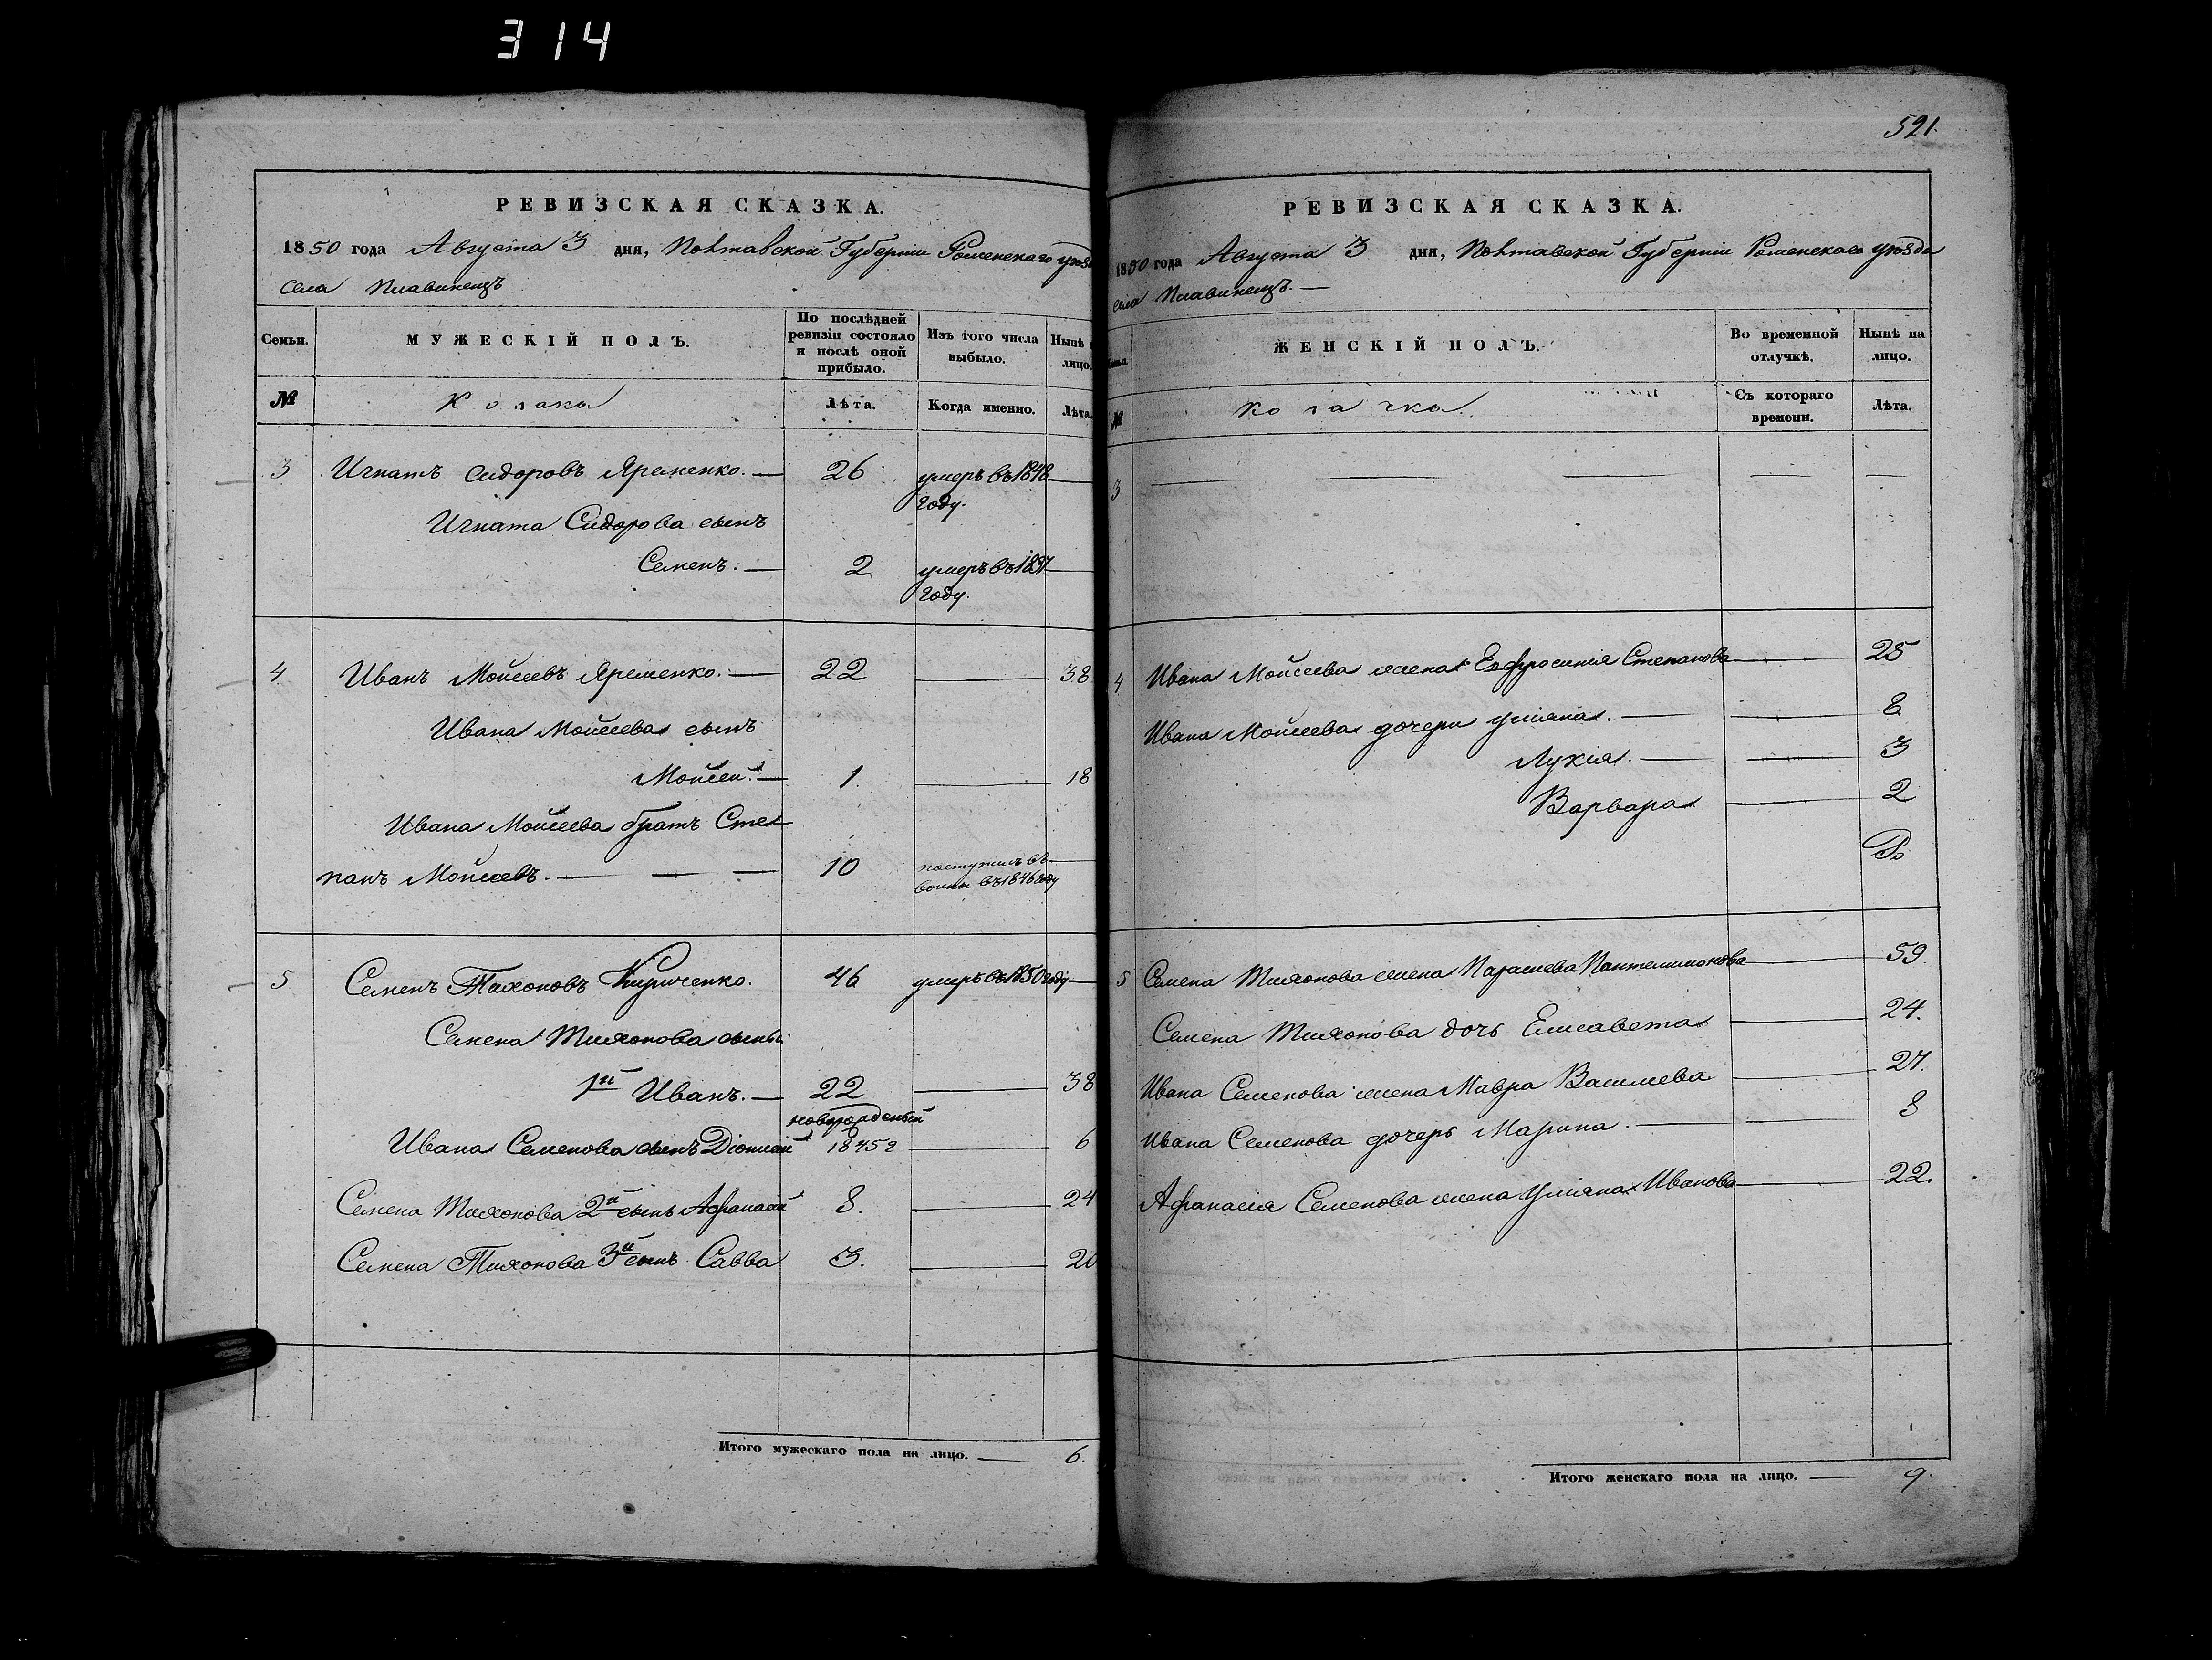 314
521.
РЕВИЗСКАЯ СКАЗКА.
1850 года Августа 3 дня, Полтавской Губерніи Роменскаго уѣзда
села Плавинещъ
Семьи. МУЖЕСКІЙ ПОЛЪ. По послѣдней ревизіи состояло и послѣ оной прибыло. Изъ того числа выбыло. Нынѣ на лицо.
№ Козаки Лѣта. Когда именно. Лѣта.
3 Игнатъ Сидоровъ Яременко. — 26 умеръ въ 1848 —
году.
Игната Сидорова сынъ
Семенъ: — 2 умеръ въ 1837 —
году.
4 Иванъ Мойсеевъ Яременко. — 22 — 38
Ивана Мойсеева сынъ
Мойсей. — 1. — 18
Ивана Мойсеева братъ Сте
панъ Мойсеевъ. — — — 10 поступилъ въ —
воины въ 1846 году
5 Семенъ Тихоновъ Кириченко. 46 умеръ въ 1850 году —
Семена Тихонова сыны
1й Иванъ. — 22 — 38
новорожденый
Ивана Семенова сынъ Діонисій 1845 г — 6
Семена Тихонова 2й сынъ Афанасій 8. — 24
Семена Тихонова 3й сынъ Савва 3. — 20
Итого мужескаго пола на лицо. — 6.
РЕВИЗСКАЯ СКАЗКА.
1850 года Августа 3 дня, Полтавской Губерніи Роменскаго уѣзда
села Плавинещъ. —
Семьи. ЖЕНСКІЙ ПОЛЪ. Во временной отлучкѣ. Нынѣ на лицо.
№ Козачки. Съ котораго времени. Лѣта.
3 — — — — —
4 Ивана Мойсеева жена Евфросинія Степанова — 25
Ивана Мойсеева дочери Уліяна. — — 8
Лукія. — — 3
Варвара — 2
5 Семена Тихонова жена Параскева Пантелимонова — 59.
Семена Тихонова дочь Елисавета — 24.
Ивана Семенова жена Мавра Василіева — 27.
Ивана Семенова дочерь Марина. — — 8
Афанасія Семенова жена Уліяна Иванова — 22.
Итого женскаго пола на лицо. — 9.